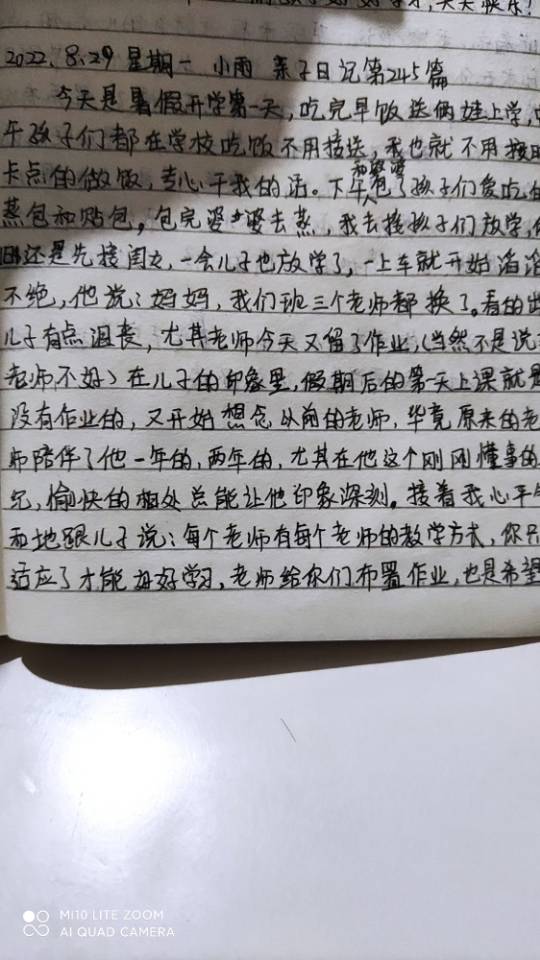 好好学习,天天快乐!
2022.8.29 星期一 小雨 亲子日记第245篇
今天是暑假开学第一天,吃完早饭送俩娃上学,
午孩子们都在学校吃饭不用接送,我也就不用按时
卡点的做饭,专心干我的活。下午和婆婆包了孩子们爱吃的
蒸包和贴包,包完婆婆去蒸,我去接孩子们放学,
旧还是先接闺女,一会儿子也放学了,一上车就开始滔滔
不绝,他说:妈妈,我们班三个老师都换了。看的出
儿子有点沮丧,尤其老师今天又留了作业,(当然不是说
老师不好)在儿子的印象里,假期后的第一天上课就是
没有作业的,又开始想念以前的老师,毕竟原来的老
师陪伴了他一年的,两年的,尤其在他这个刚刚懂事的
兄,愉快的相处总能让他印象深刻。接着我心平气
和地跟儿子说:每个老师有每个老师的教学方式,你只
适应了才能好好学习,老师给你们布置作业,也是希望
MI10 LITE ZOOM
AI QUAD CAMERA